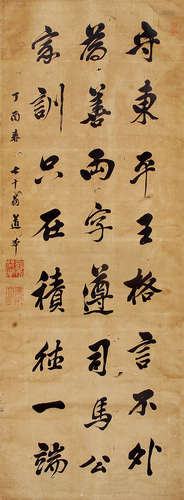 守東平王格言不外
為善兩字遵司馬公
家訓只在積德一端
丁酉春
七十翁道